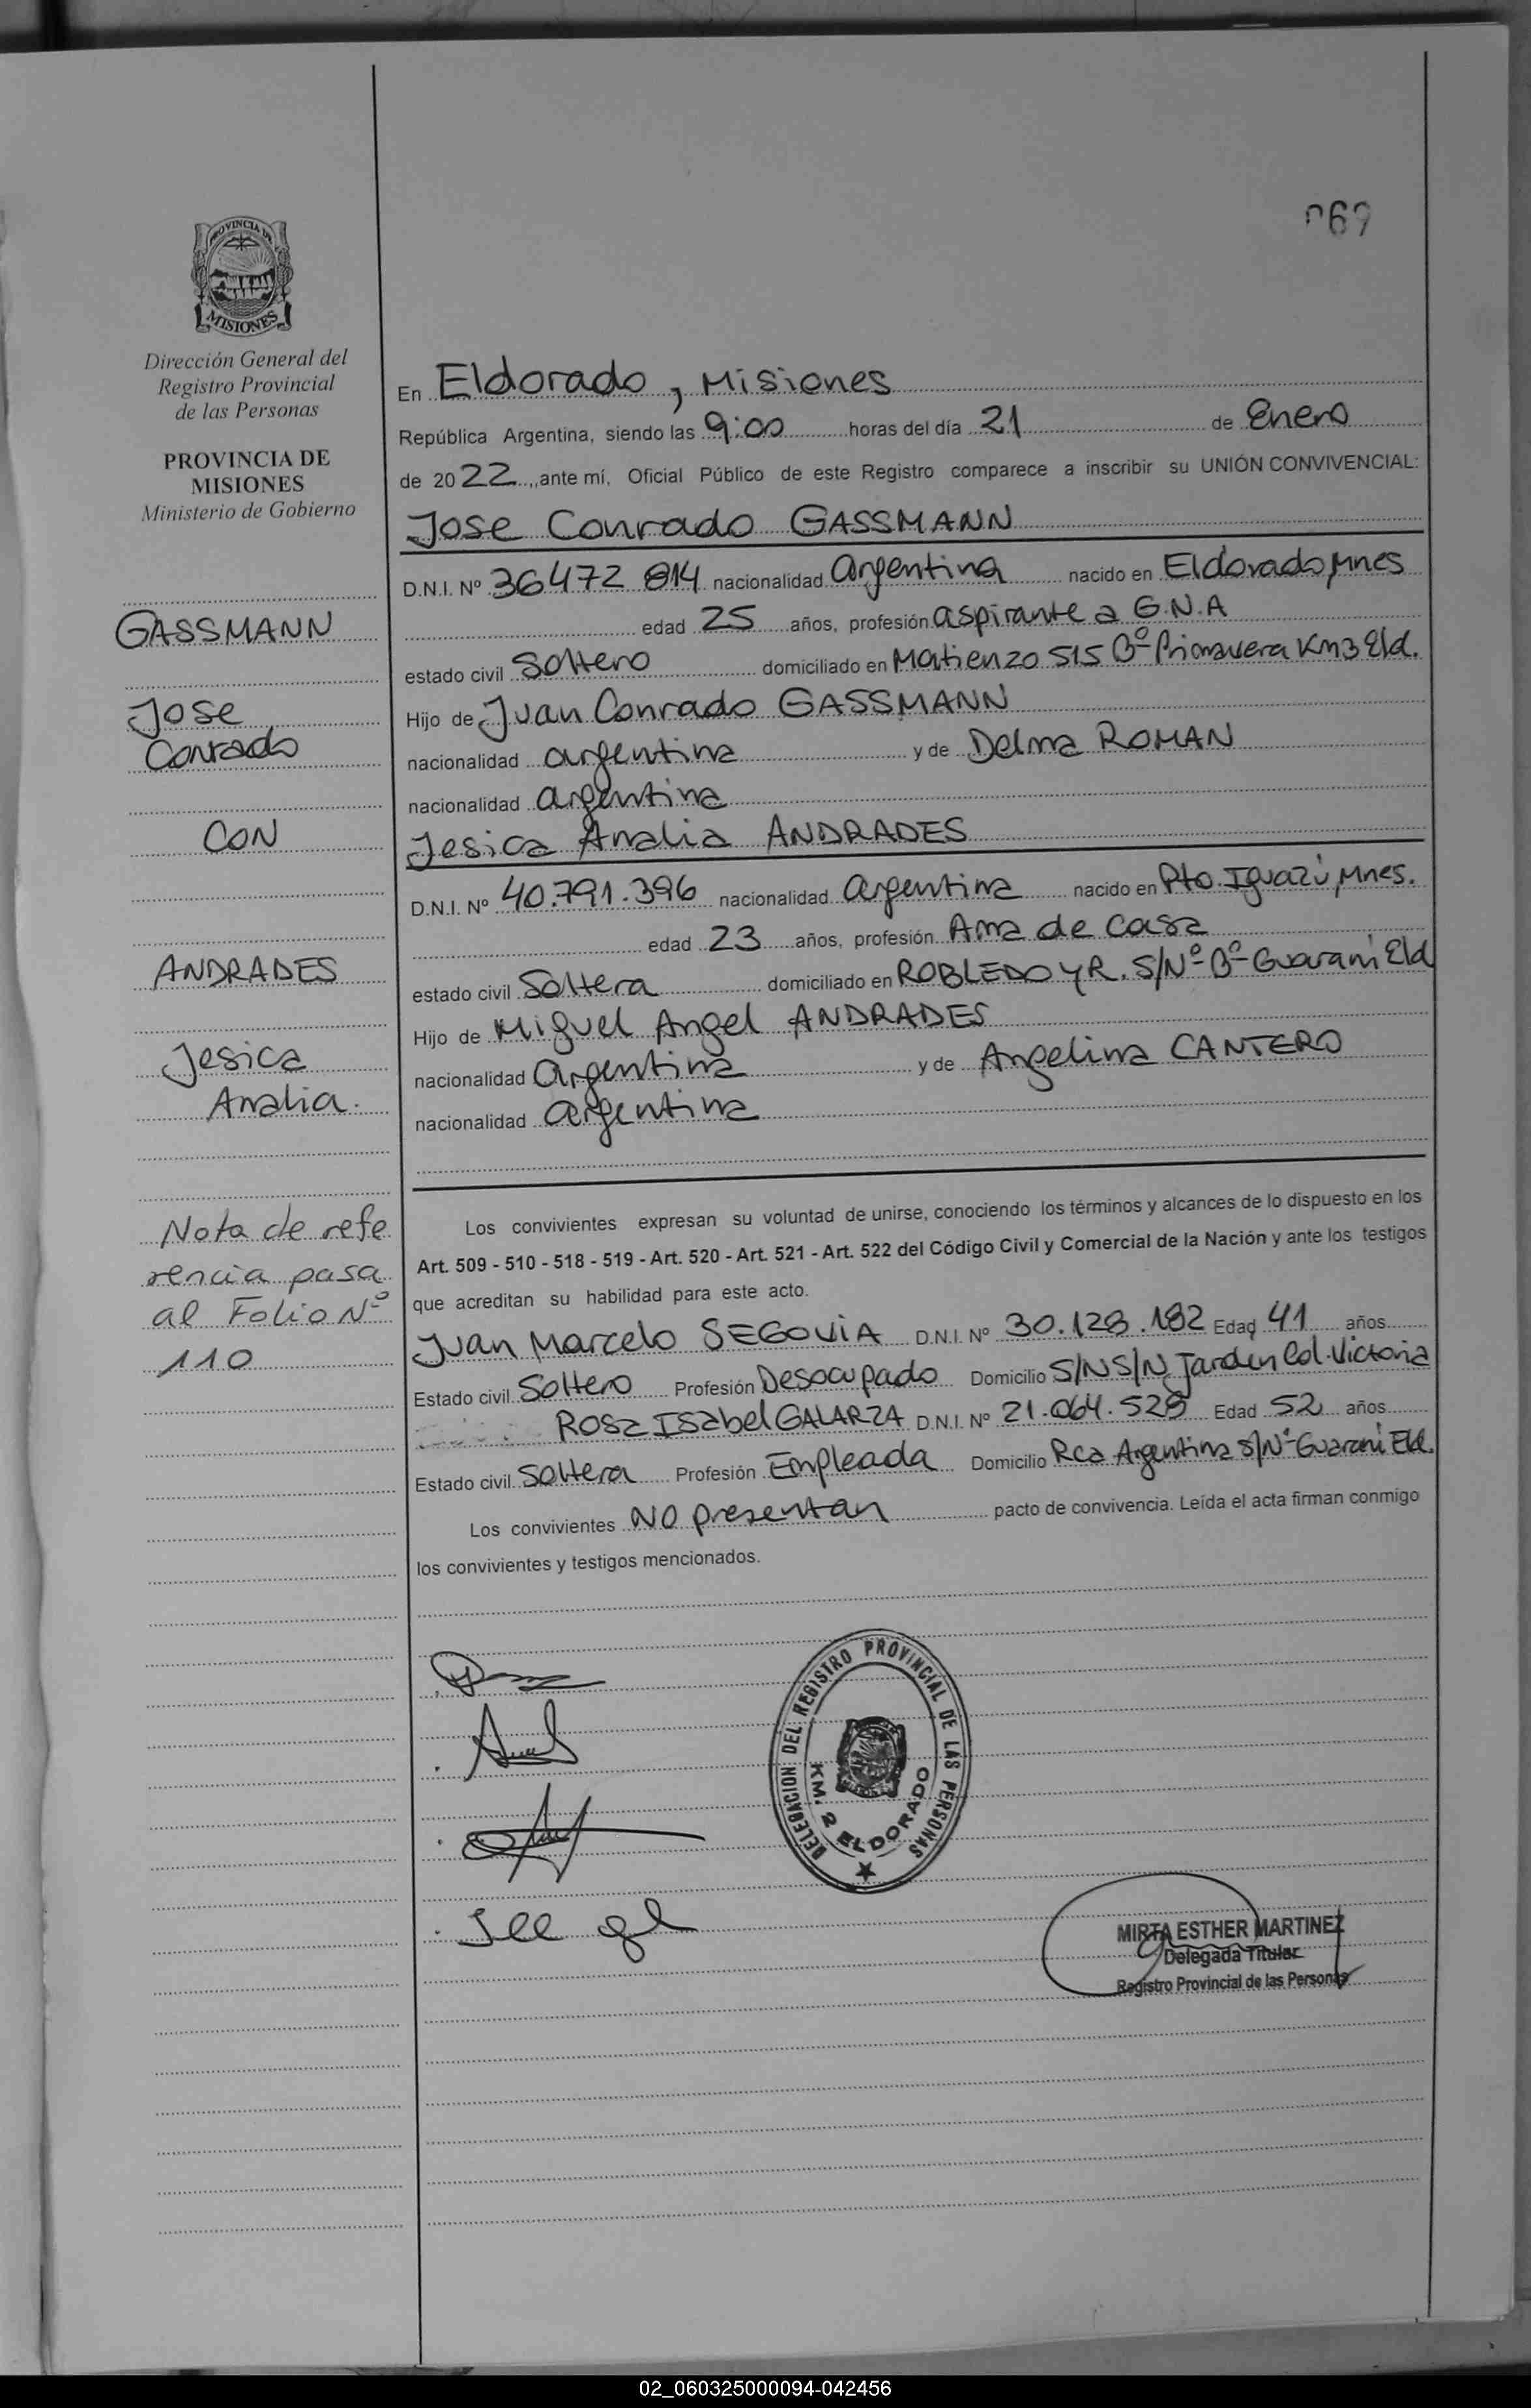 069
PROVINCIA DE
MISIONES
Dirección General del
Registro Provincial
de las Personas
PROVINCIA DE
MISIONES
Ministerio de Gobierno
GASSMANN
Jose
Conrado
CON
ANDRADES
Jesica
Analia.
Nota de refe
rencia pasa
al Folio Nº
110
En Eldorado, Misiones
República Argentina, siendo las 9:00 horas del día 21 de Enero
de 2022, ante mí, Oficial Público de este Registro comparece a inscribir su UNIÓN CONVIVENCIAL:
Jose Conrado GASSMANN
D.N.I. Nº 36472 814 nacionalidad Argentina nacido en Eldorado, Mnes
edad 25 años, profesión aspirante a G.N.A
estado civil Soltero domiciliado en Matienzo 515 Bº Primavera Km3 Eld.
Hijo de Juan Conrado GASSMANN
nacionalidad argentina y de Delma ROMAN
nacionalidad argentina
Jesica Analia ANDRADES
D.N.I. Nº 40.791.396 nacionalidad Argentina nacido en Pto. Iguazú, Mnes.
edad 23 años, profesión Ama de Casa
estado civil Soltera domiciliado en ROBLEDO y R. S/Nº Bº Guaraní Eld
Hijo de Miguel Angel ANDRADES
nacionalidad Argentina y de Angelina CANTERO
nacionalidad argentina
Los convivientes expresan su voluntad de unirse, conociendo los términos y alcances de lo dispuesto en los
Art. 509 - 510 - 518 - 519 - Art. 520 - Art. 521 - Art. 522 del Código Civil y Comercial de la Nación y ante los testigos
que acreditan su habilidad para este acto.
Juan Marcelo SEGOVIA D.N.I. Nº 30.128.182 Edad 41 años
Estado civil Soltero Profesión Desocupado Domicilio S/N S/N Jardin Col. Victoria
Rosa Isabel GALARZA D.N.I. Nº 21.064.528 Edad 52 años
Estado civil Soltera Profesión Empleada Domicilio Rca Argentina S/Nº Guaraní Eld.
Los convivientes NO presentan pacto de convivencia. Leída el acta firman conmigo
los convivientes y testigos mencionados.
DELEGACION DEL REGISTRO PROVINCIAL DE LAS PERSONAS
KM. 2 ELDORADO
MIRTA ESTHER MARTINEZ
Delegada Titular
Registro Provincial de las Personas
02_060325000094-042456